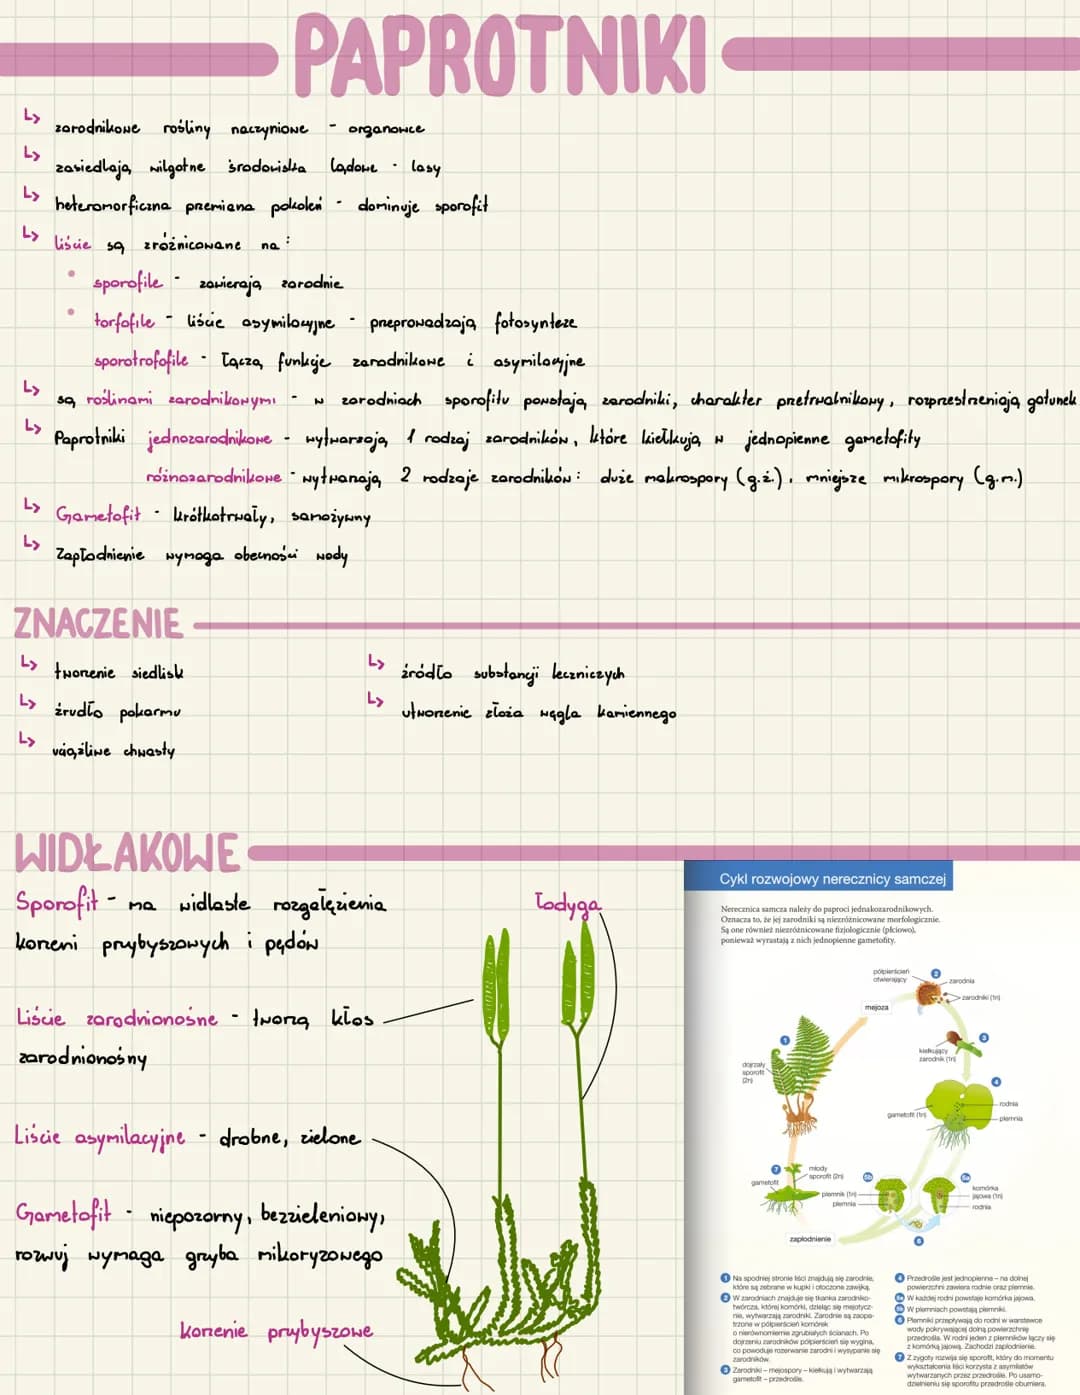 PAPROTNIKI
↳ zarodnikowe rośliny naczyniowe - organowce
↳ zasiedlają wilgotne środowiska lądowe - lasy
↳ heteromorficzna przemiana pokoleń - dominuje sporofit
↳ liście są zróżnicowane na:
• sporofile - zawierają zarodnie
• torfofile - liście asymilacyjne - przeprowadzają fotosyntezę
sporotrofofile - łączą funkcje zarodnikowe i asymilacyjne
↳ są roślinami zarodnikowymi - w zarodniach sporofitu powstają zarodniki, charakter przetrwalnikowy, rozprzestrzeniają gatunek
↳ Paprotniki jednozarodnikowe - wytwarzają 1 rodzaj zarodników, które kiełkują w jednopienne gametofity
różnozarodnikowe - wytwarzają 2 rodzaje zarodników: duże makrospory (g.ż.), mniejsze mikrospory (g.m.)
↳ Gametofit - krótkotrwały, samożywny
↳ Zapłodnienie wymaga obecności wody
ZNACZENIE
↳ tworzenie siedlisk
↳ źrudło pokarmu
↳ uciążliwe chwasty
↳ źródło substancji leczniczych
↳ utworzenie złoża węgla kamiennego
WIDŁAKOWE
Sporofit - ma widlaste rozgałęzienia
korzeni przybyszowych i pędów
Liście zarodnionośne - tworzą kłos
zarodnionośny
Liście asymilacyjne - drobne, zielone
Gametofit - niepozorny, bezzieleniowy,
rozwuj wymaga grzyba mikoryzowego
korzenie przybyszowe
łodyga
Cykl rozwojowy nerecznicy samczej
Nerecznica samcza należy do paproci jednakozarodnikowych.
Oznacza to, że jej zarodniki są niezróżnicowane morfologicznie.
Są one również niezróżnicowane fizjologicznie (płciowo),
ponieważ wyrastają z nich jednopienne gametofity.
półpierścień
otwierający
2
zarodnia
zarodniki (1n)
mejoza
1
3
kiełkujący
zarodnik (1n)
dojrzały
sporofit
(2n)
4
rodnia
gametofit (1n)
plemnia
7
młody
sporofit (2n)
gametofit
5b
5a
plemnik (1n)
plemnia
komórka
jajowa (1n)
rodnia
zapłodnienie
6
1 Na spodniej stronie liści znajdują się zarodnie,
które są zebrane w kupki i otoczone zawijką.
2 W zarodniach znajduje się tkanka zarodniko-
twórcza, której komórki, dzieląc się mejotycz-
nie, wytwarzają zarodniki. Zarodnie są zaopa-
trzone w półpierścień komórek
o nierównomiernie zgrubiałych ścianach. Po
dojrzeniu zarodników półpierścień się wygina,
co powoduje rozerwanie zarodni i wysypanie się
zarodników.
3 Zarodniki – mejospory – kiełkują i wytwarzają
gametofit – przedrośle.
4 Przedrośle jest jednopienne – na dolnej
powierzchni zawiera rodnie oraz plemnie.
5a W każdej rodni powstaje komórka jajowa.
5b W plemniach powstają plemniki.
6 Plemniki przepływają do rodni w warstewce
wody pokrywającej dolną powierzchnię
przedrośla. W rodni jeden z plemników łączy się
z komórką jajową. Zachodzi zapłodnienie.
7 Z zygoty rozwija się sporofit, który do momentu
wykształcenia liści korzysta z asymilatów
wytwarzanych przez przedrośle. Po usamo-
dzielnieniu się sporofitu przedrośle obumiera.